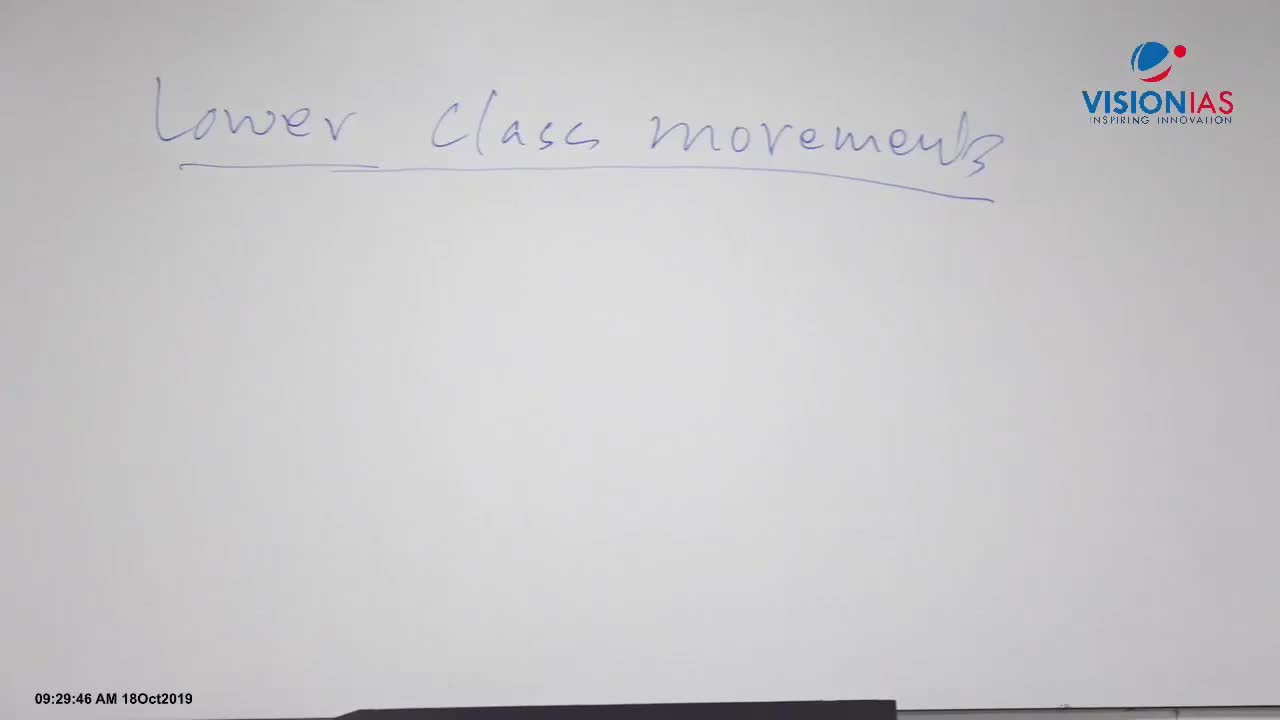 Lower class movements
VISIONIAS
INSPIRING INNOVATION
09:29:46 AM 18Oct2019